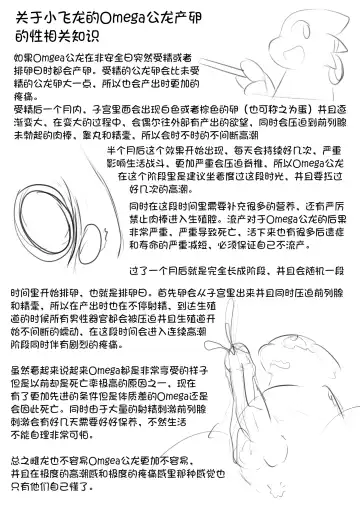 关于小飞龙的Omega公龙产卵
的性相关知识
如果Omgea公龙在非安全日突然受精或者
排卵日时都会产卵。受精的公龙卵会比未受
精的公龙卵大一点，所以也会产出时更加的
疼痛。
受精后一个月内，子宫里面会出现白色或者棕色的卵（也可称之为蛋）并且逐
渐变大，在变大的过程中，会偶尔往外部有产出的欲望，同时会压迫到前列腺
未勃起的肉棒，睾丸和精囊，所以会时不时的不间断高潮
半个月后这个效果开始出现，每天会持续好几次，严重
影响生活战斗，更加严重会压迫脊椎，所以Omega公龙
在这个阶段里是建议坐着度过这段时光，并且要撸过
好几次的高潮。
同时在这段时间里需要补充很多的营养，还有严厉
禁止肉棒进入生殖腔。流产对于Omega公龙的后果
非常严重，严重导致死亡，活下来也有很多后遗症
和寿命的严重减短，必须保证自己不流产。
过了一个月后就是完全长成阶段，并且会随机一段
时间里开始排卵，也就是排卵日。首先卵会从子宫里出来并且同时压迫前列腺
和精囊，所以在产出时也在不停射精，到达生殖
道的时候所有男性器官都会被压迫并且生殖道开
始不间断的蠕动，在这段时间会进入连续高潮
阶段同时伴有剧烈的疼痛。
虽然看起来说起来Omega都是非常享受的样子
但是以前却是死亡率极高的原因之一，现在
有了更加先进的条件但是体质差的Omega还是
会因此死亡。同时由于大量的射精刺激前列腺
刺激会有好几天需要好好保养，不然生活
不能自理非常可怕。
总之雌龙也不容易Omgea公龙更加不容易，
并且在极度的高潮感和极度的疼痛感里那种感觉也
只有他们自己懂了。